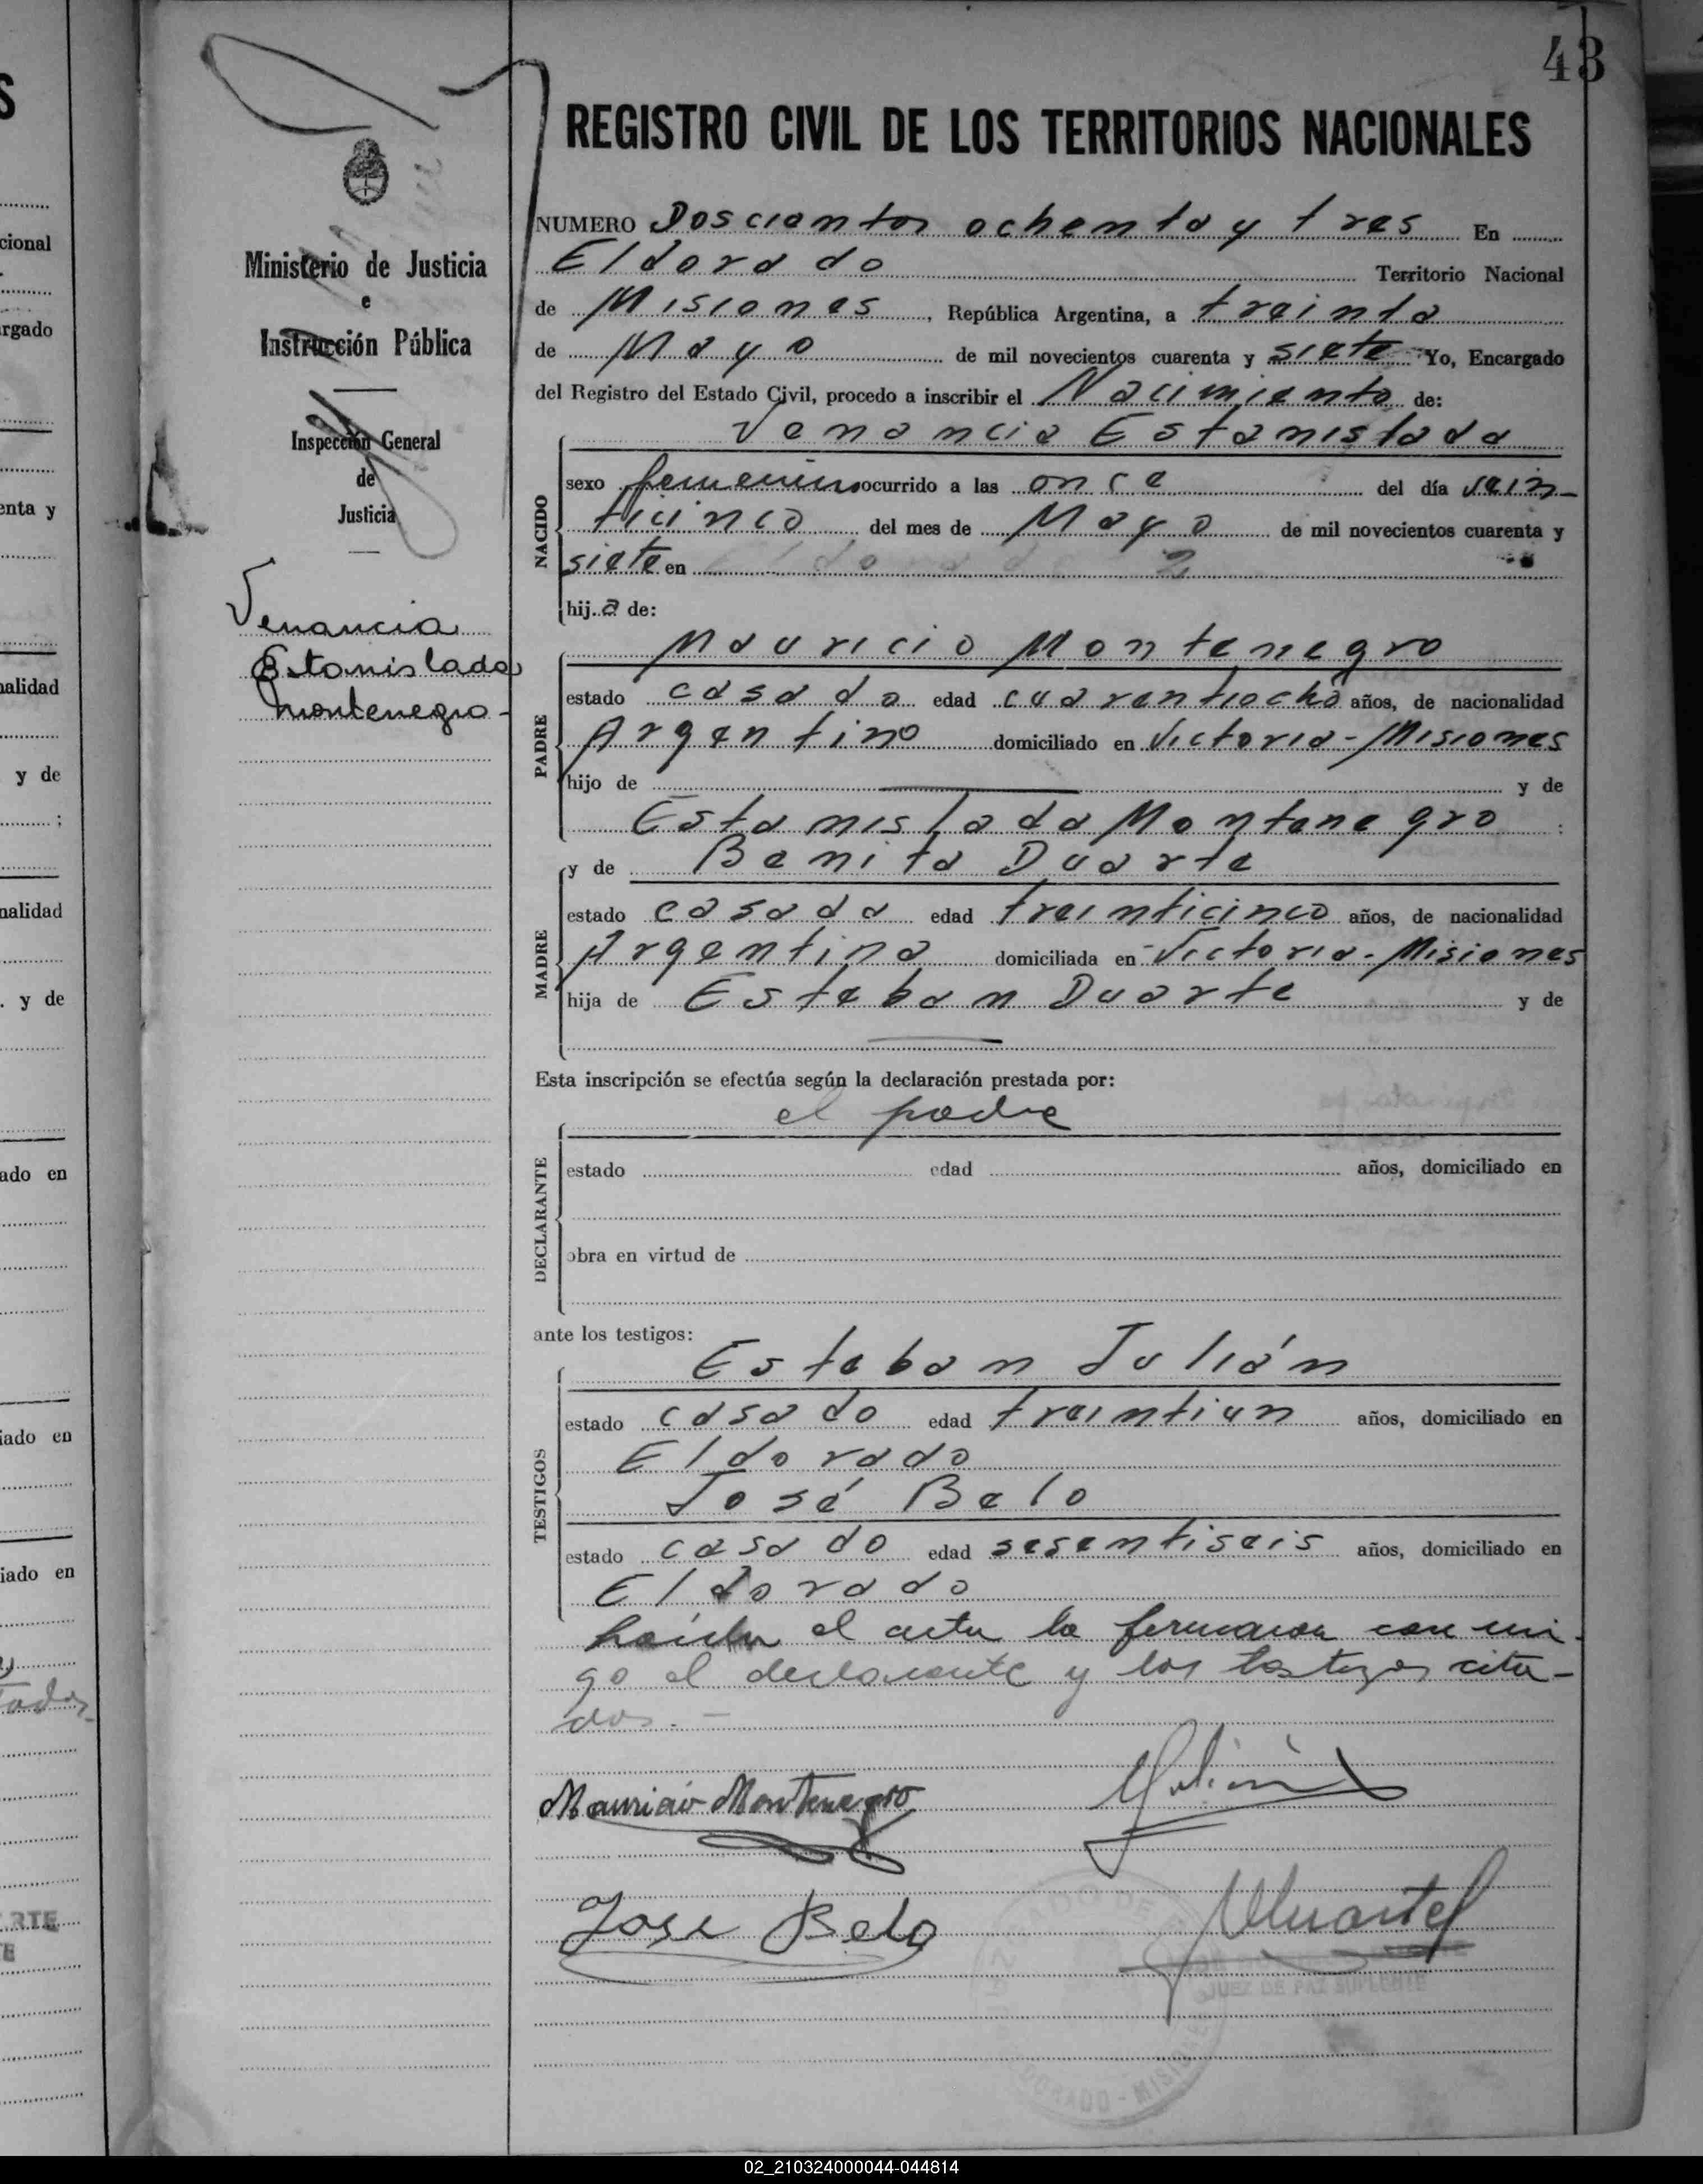 43
REGISTRO CIVIL DE LOS TERRITORIOS NACIONALES
Ministerio de Justicia
e
Instrucción Pública
Inspección General
de
Justicia
Venancia
Estanislada
Montenegro
NUMERO Doscientos ochenta y tres En
Eldorado Territorio Nacional
de Misiones, República Argentina, a treinta
de Mayo de mil novecientos cuarenta y siete Yo, Encargado
del Registro del Estado Civil, procedo a inscribir el Nacimiento de:
Venancia Estanislada
NACIDO
sexo femenino ocurrido a las once del día vein-
ticinco del mes de Mayo de mil novecientos cuarenta y
siete en
hija de:
Mauricio Montenegro
PADRE
estado casado edad cuarentiocho años, de nacionalidad
Argentino domiciliado en Victoria-Misiones
hijo de y de
Estanislada Montenegro :
y de Benita Duarte
MADRE
estado casada edad treinticinco años, de nacionalidad
Argentina domiciliada en Victoria-Misiones
hija de Esteban Duarte y de
Esta inscripción se efectúa según la declaración prestada por:
el padre
DECLARANTE
estado edad años, domiciliado en
obra en virtud de
ante los testigos:
Esteban Julián
TESTIGOS
estado casado edad treintiun años, domiciliado en
Eldorado
José Belo
estado casado edad sesentiseis años, domiciliado en
Eldorado
el acta la firmaron con mi-
go el declarante y los testigos cita-
dos.-
Mauricio Montenegro
Julián
Jose Belo
JUEZ DE PAZ SUPLENTE
02_210324000044-044814